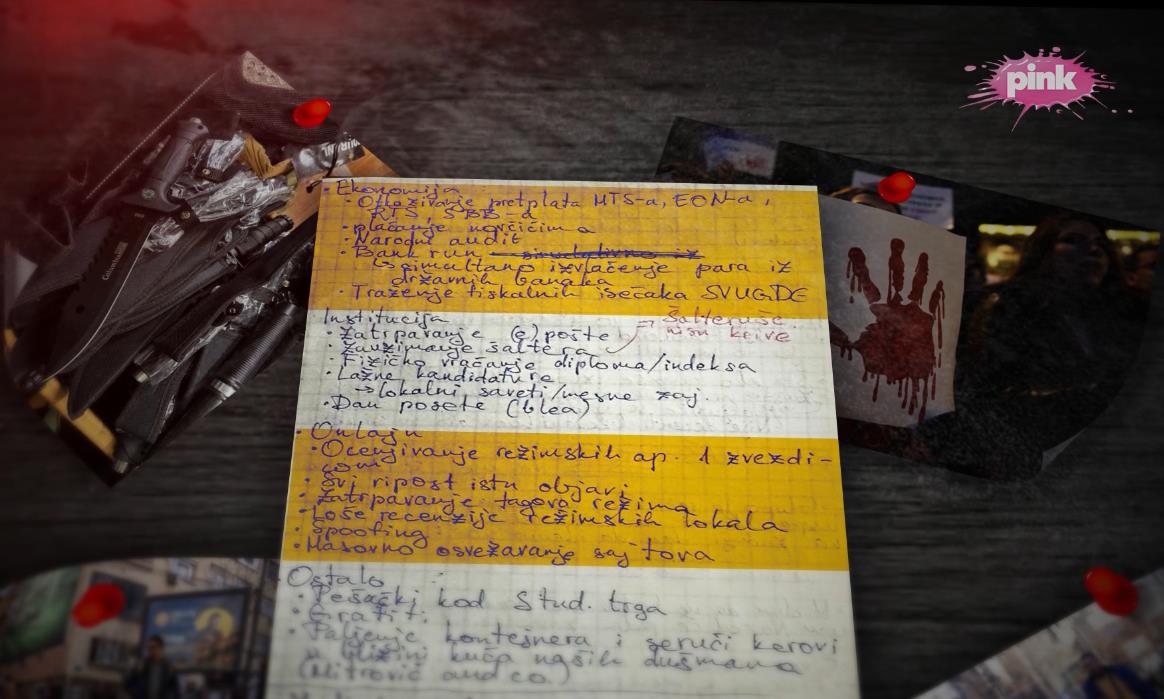 pink
• Ekonomija
• Otkazivanje pretplata MTS-a, EON-a,
RTS, SBB-a
• plaćanje novčićima
• Narodni audit
• Bank run
↳ simultano izvlačenje para iz
državnih banaka
• Traženje fiskalnih isečaka SVUGDE
Institucija
• Zatrpavanje (e)pošte
• Zauzimanje šaltera
→ Šalteruše
nisu krive
• Fizičko vraćanje diploma/indeksa
• Lažne kandidature
↳ lokalni saveti/mesne zaj.
• Dan posete (blea)
• Onlajn
• Ocenjivanje režimskih ap. 1 zvezdi-
com
• Svi ripost istu objavu
• Zatrpavanje tagova režima
• Loše recenzije režimskih lokala
• Spoofing
• Masovno osvežavanje sajtova
Ostalo
• Pešački kod Stud. trga
• Grafit.
• Paljenje kontejnera i seruči kerovi
u blizini kuća naših dušmana
(Mitrović and co.)